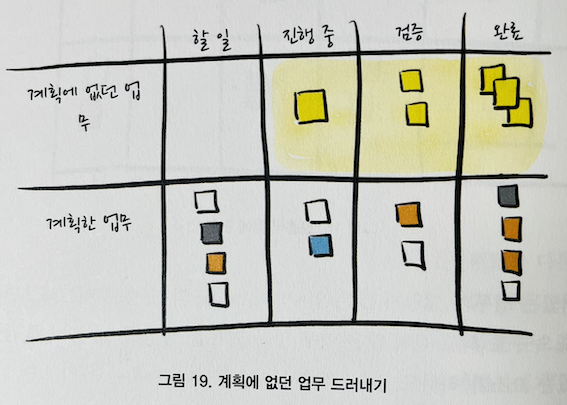 할 일
진행 중
검증
완료
계획에 없던 업
무
계획한 업무
그림 19. 계획에 없던 업무 드러내기